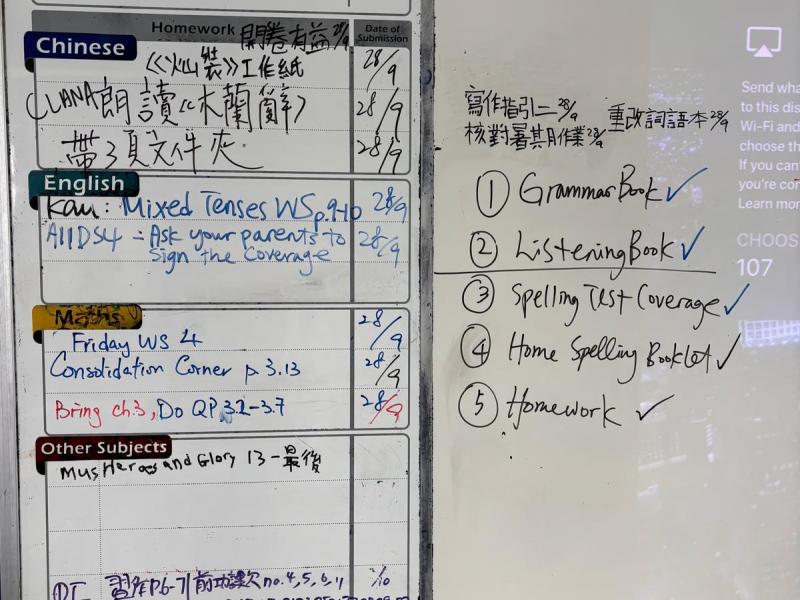 Homework 開卷有益 28/9
Date of Submission
Chinese
《灿裝》工作紙 28/9
朗讀《木蘭辭》 28/9
帶3頁文件夾 28/9
English
Kau: Mixed Tenses WS p.9-10 28/9
All DS4 - Ask your parents to sign the Coverage 28/9
Maths
Friday WS 4 28/9
Consolidation Corner p 3.13 28/9
Bring ch.3, Do QP 3.2-3.7 28/9
Other Subjects
Mus Heroes and Glory 13-最後
習作P.6-7 前功課欠no.4,5,6,11 1/10
寫作指引二 28/9
核對暑其月作業 28/9
重改詞語本 28/9
① Grammar Book ✓
② Listening Book ✓
③ Spelling Test Coverage ✓
④ Home Spelling Booklet ✓
⑤ Homework ✓
Send wha
to this dis
Wi-Fi and
choose th
If you can
you're cor
Learn mor
CHOOS
107